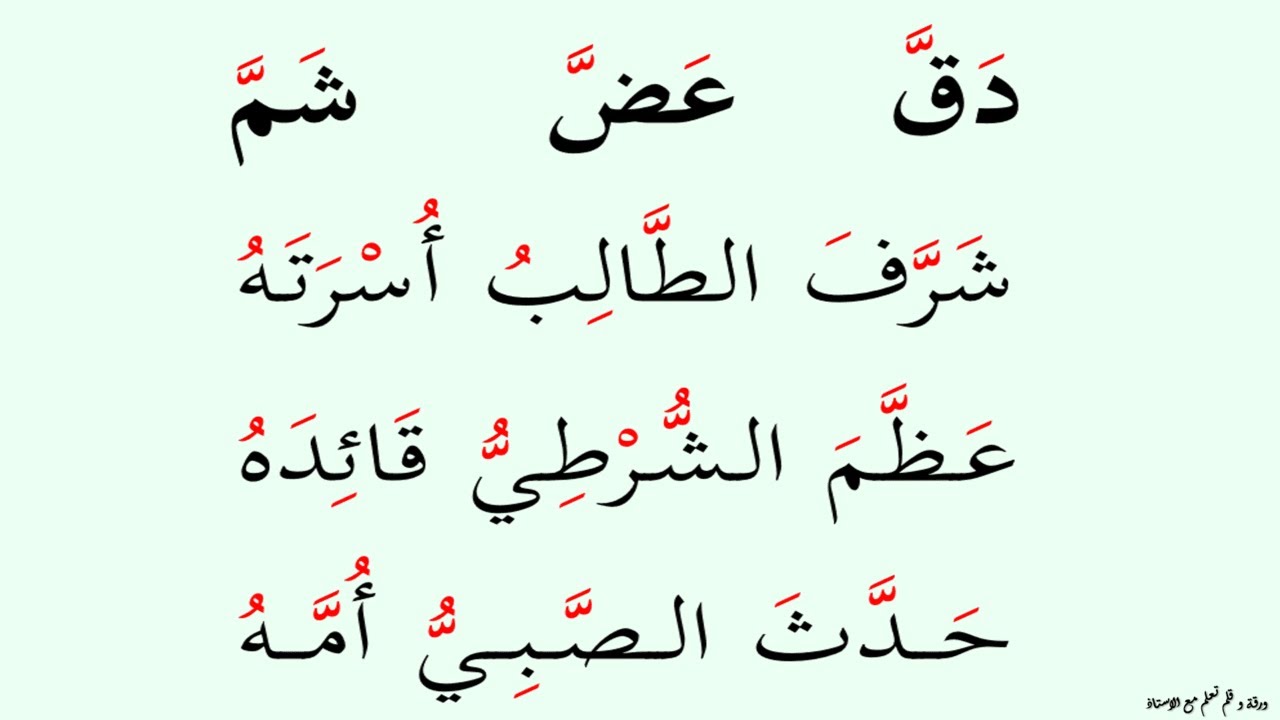 دَقَّ عَضَّ شَمَّ
شَرَّفَ الطَّالِبُ أُسْرَتَهُ
عَظَّمَ الشُّرْطِيُّ قَائِدَهُ
حَدَّثَ الصَّبِيُّ أُمَّهُ
ورقة و قلم تعلم مع الاستاذ